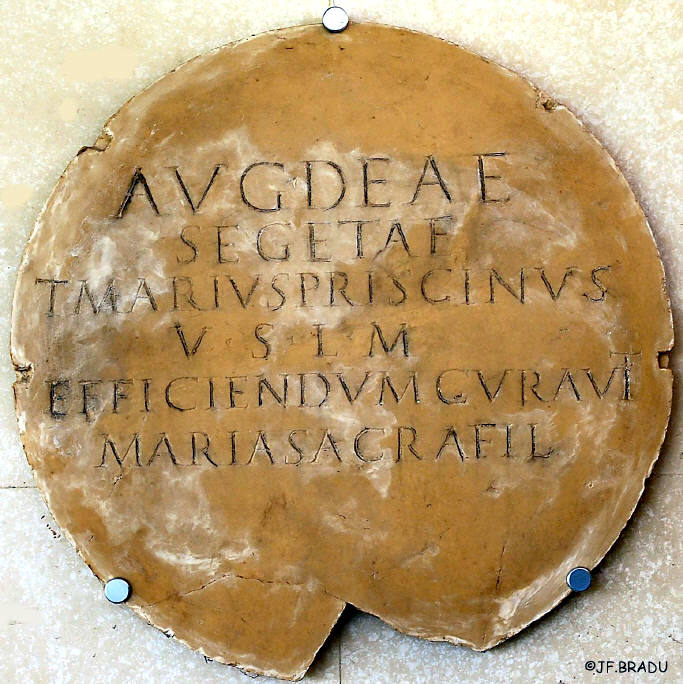 AVG DEAE
SEGETAE
T MARIVS PRISCINVS
V · S · L · M
EFFICIENDVM CVRAVIT
MARIA SACRA FIL
©JF.BRADU